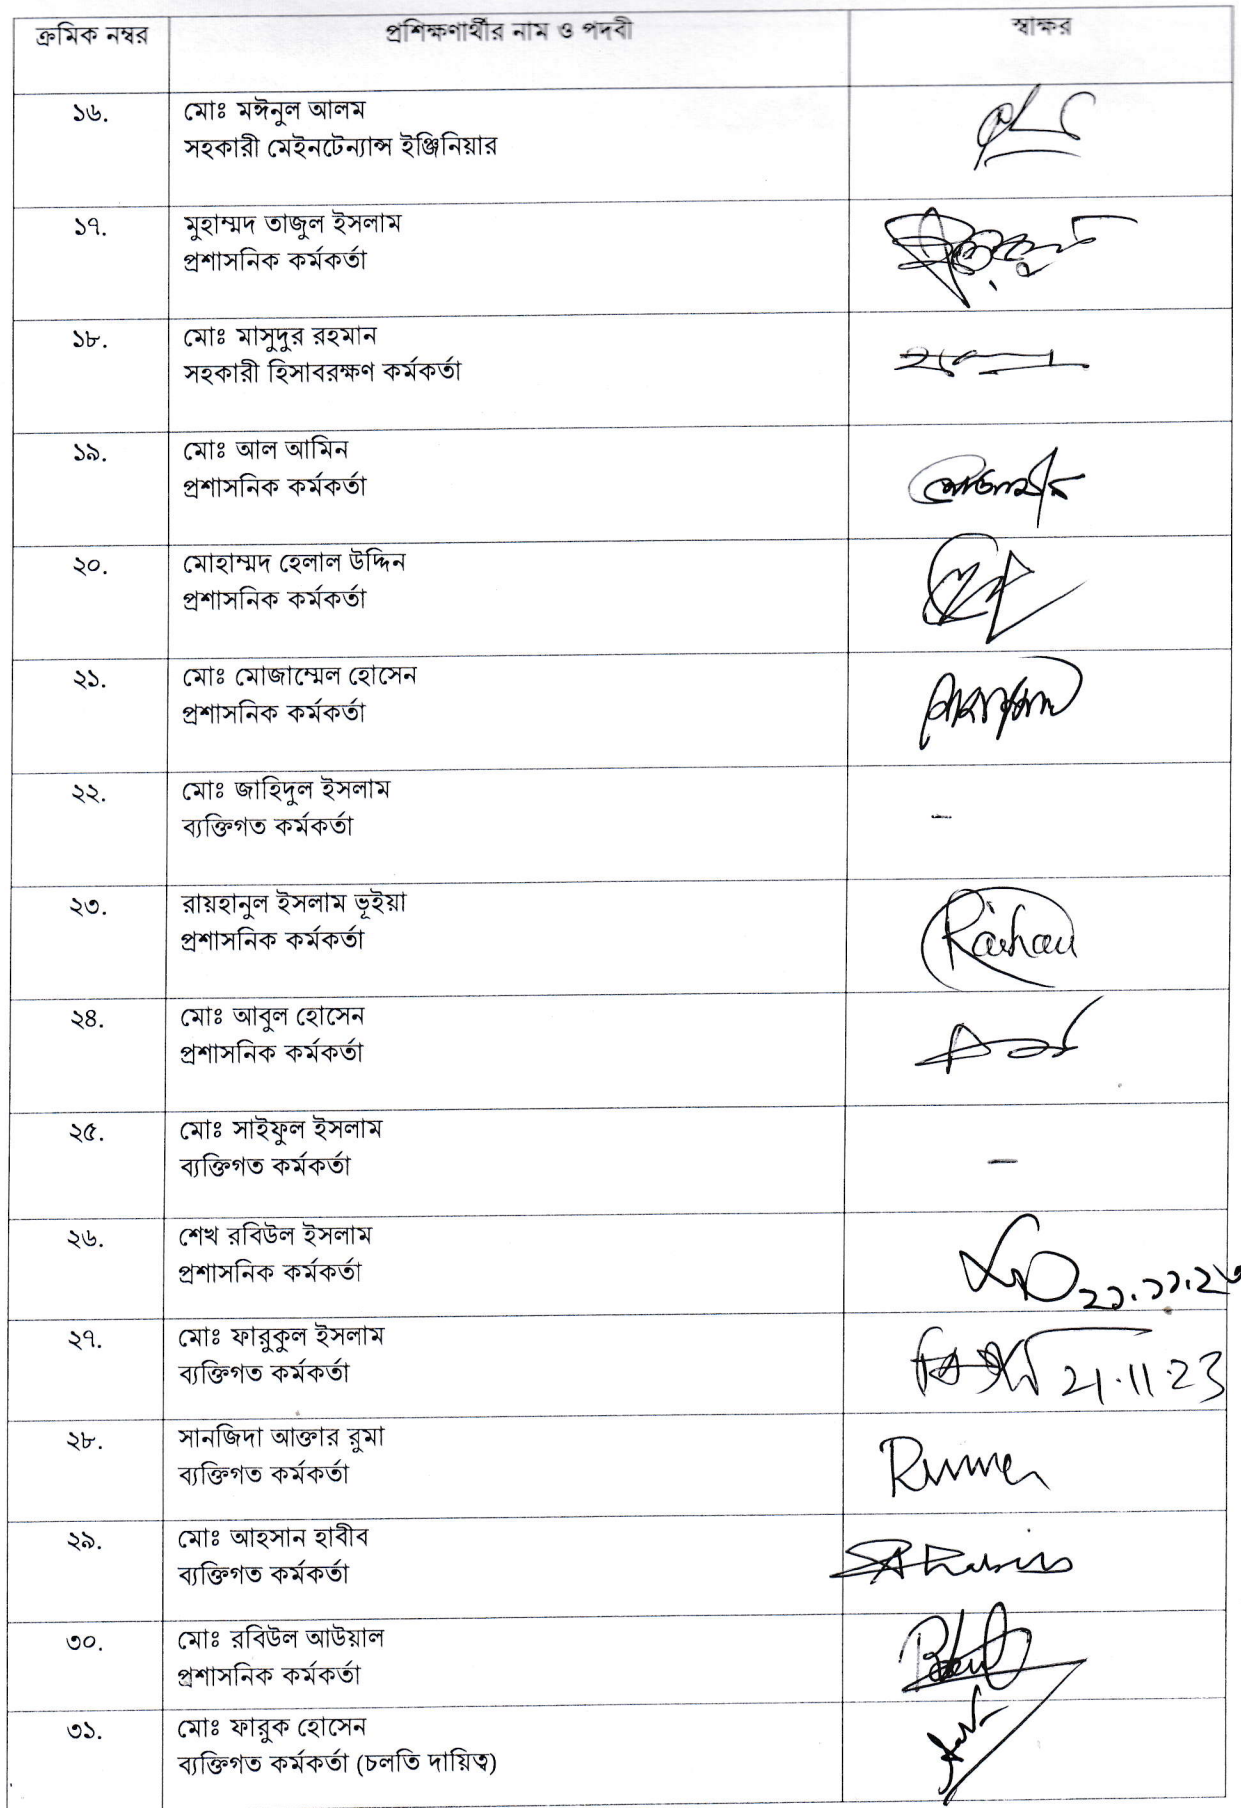 ক্রমিক নম্বর প্রশিক্ষণার্থীর নাম ও পদবী স্বাক্ষর
১৬. মোঃ মঈনুল আলম
সহকারী মেইনটেন্যান্স ইঞ্জিনিয়ার
১৭. মুহাম্মদ তাজুল ইসলাম
প্রশাসনিক কর্মকর্তা
১৮. মোঃ মাসুদুর রহমান
সহকারী হিসাবরক্ষণ কর্মকর্তা
১৯. মোঃ আল আমিন
প্রশাসনিক কর্মকর্তা
২০. মোহাম্মদ হেলাল উদ্দিন
প্রশাসনিক কর্মকর্তা
২১. মোঃ মোজাম্মেল হোসেন
প্রশাসনিক কর্মকর্তা
২২. মোঃ জাহিদুল ইসলাম
ব্যক্তিগত কর্মকর্তা -
২৩. রায়হানুল ইসলাম ভূইয়া
প্রশাসনিক কর্মকর্তা Raihan
২৪. মোঃ আবুল হোসেন
প্রশাসনিক কর্মকর্তা
২৫. মোঃ সাইফুল ইসলাম
ব্যক্তিগত কর্মকর্তা -
২৬. শেখ রবিউল ইসলাম
প্রশাসনিক কর্মকর্তা ২১.১১.২৩
২৭. মোঃ ফারুকুল ইসলাম
ব্যক্তিগত কর্মকর্তা 21.11.23
২৮. সানজিদা আক্তার রুমা
ব্যক্তিগত কর্মকর্তা
২৯. মোঃ আহসান হাবীব
ব্যক্তিগত কর্মকর্তা
৩০. মোঃ রবিউল আউয়াল
প্রশাসনিক কর্মকর্তা
৩১. মোঃ ফারুক হোসেন
ব্যক্তিগত কর্মকর্তা (চলতি দায়িত্ব)